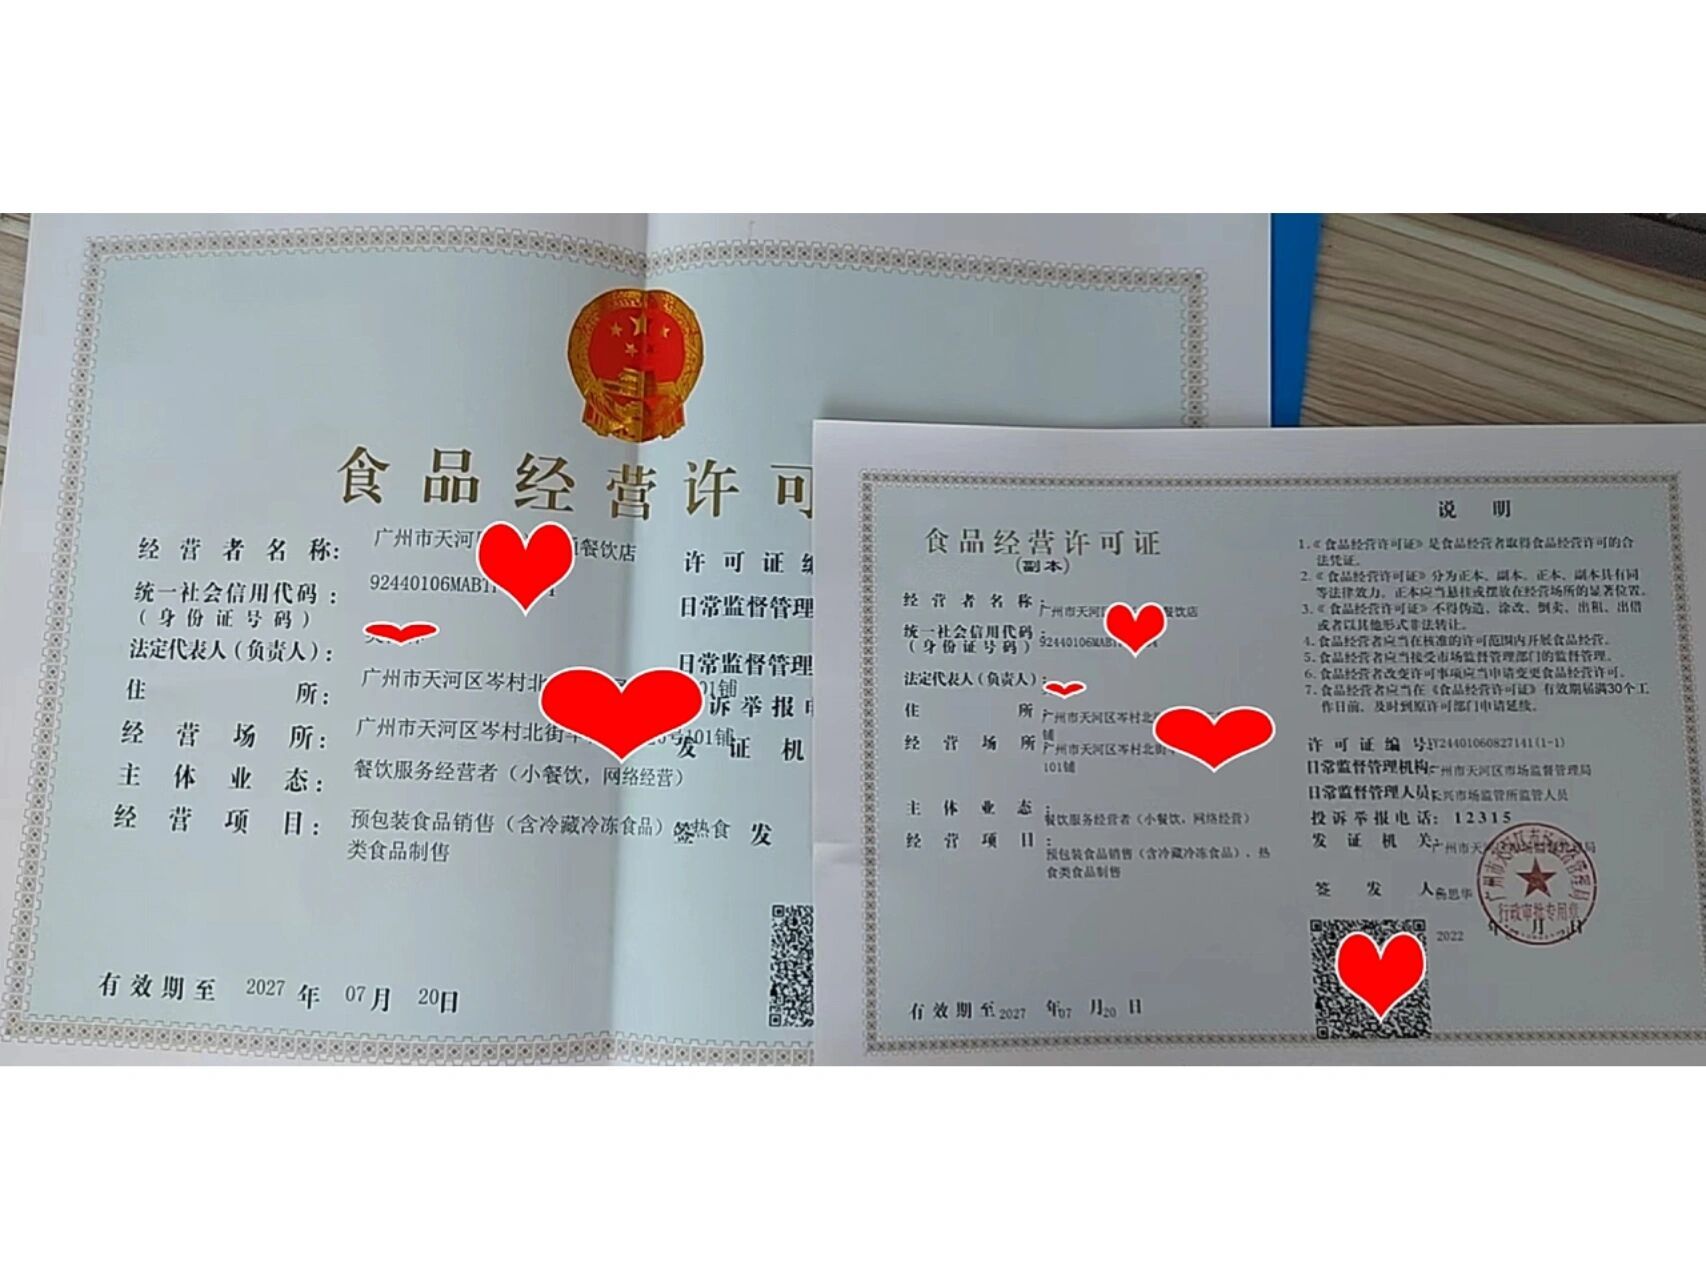 食品经营许可
经营者名称：
广州市天河
餐饮店
统一社会信用代码：
92440106MABT
（身份证号码）
法定代表人（负责人）：
住所：
广州市天河区岑村北
01铺
经营场所：
广州市天河区岑村北街
号101铺
主体业态：
餐饮服务经营者（小餐饮，网络经营）
经营项目：
预包装食品销售（含冷藏冷冻食品）
热食
类食品制售
有效期至 2027 年 07月 20日
许可证编
日常监督管理
日常监督管理
诉举报电
发证机
签发
食品经营许可证
（副本）
经营者名称：
广州市天河
餐饮店
统一社会信用代码：
（身份证号码）
92440106MAB
法定代表人（负责人）：
住所
广州市天河区岑村北
铺
经营场所
广州市天河区岑村北街
101铺
主体业态：
餐饮服务经营者（小餐饮，网络经营）
经营项目：
预包装食品销售（含冷藏冷冻食品）、热
食类食品制售
有效期至2027 年07 月20 日
说明
1.《食品经营许可证》是食品经营者取得食品经营许可的合
法凭证。
2.《食品经营许可证》分为正本、副本。正本、副本具有同
等法律效力。正本应当悬挂或摆放在经营场所的显著位置。
3.《食品经营许可证》不得伪造、涂改、倒卖、出租、出借
或者以其他形式非法转让。
4.食品经营者应当在核准的许可范围内开展食品经营。
5.食品经营者应当接受市场监督管理部门的监督管理。
6.食品经营者改变许可事项应当申请变更食品经营许可。
7.食品经营者应当在《食品经营许可证》有效期届满30个工
作日前，及时到原许可部门申请延续。
许可证编号：
JY24401060827141(1-1)
日常监督管理机构：
广州市天河区市场监督管理局
日常监督管理人员：
长兴市场监管所监管人员
投诉举报电话：12315
发证机关：
广州市天河区市场监督管理局
签发人
2022 年 月 日
行政审批专用章